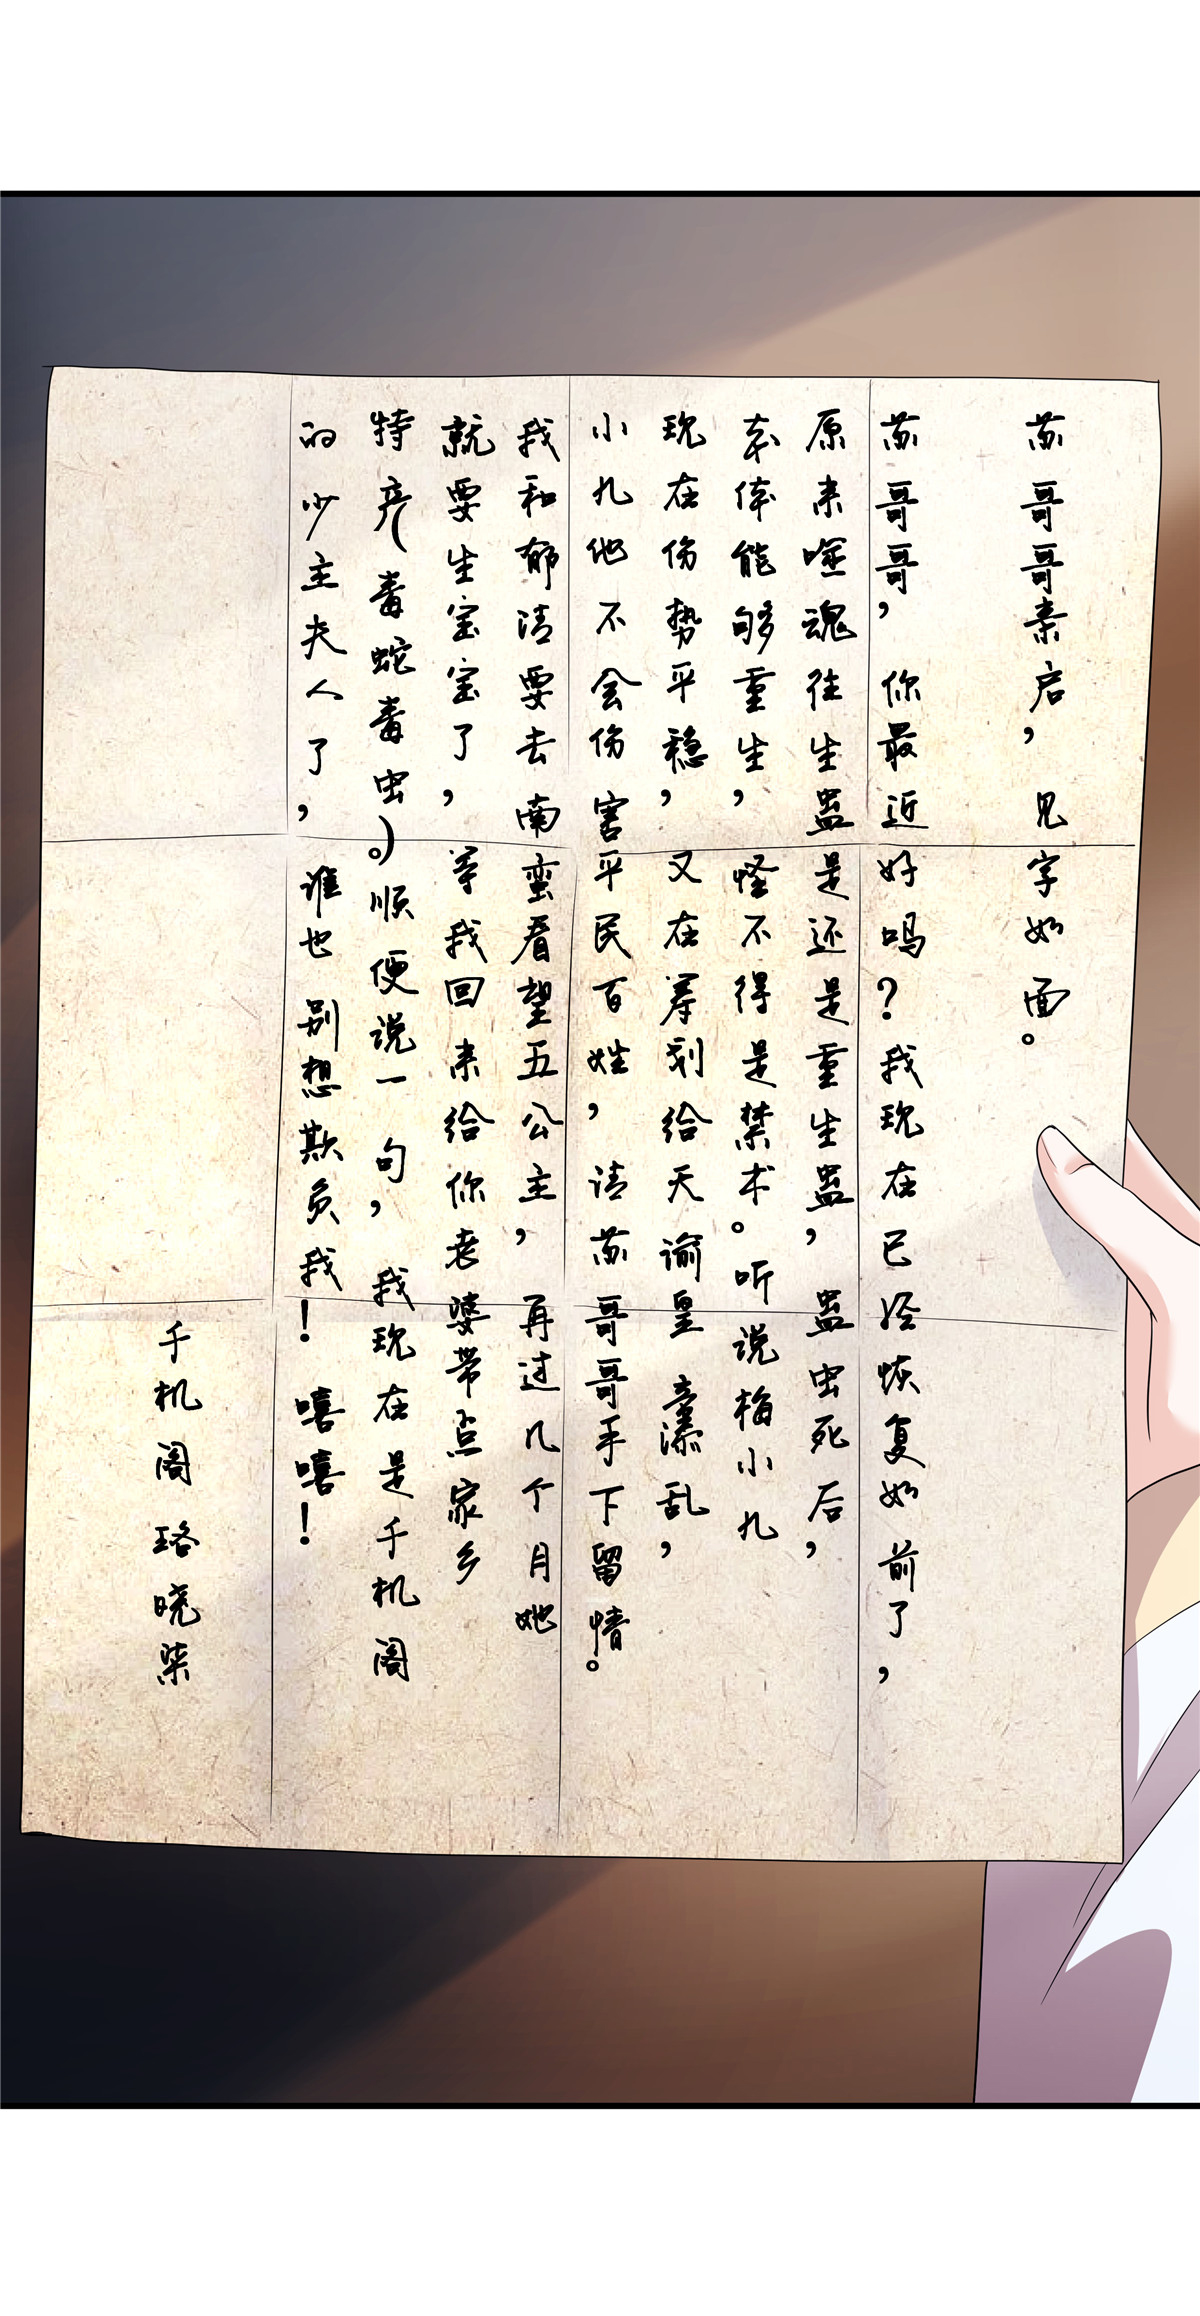 苏哥哥亲启，见字如面。
苏哥哥，你最近好吗？我现在已经恢复如前了，
原来噬魂往生蛊是还是重生蛊，蛊虫死后，
本体能够重生，怪不得是禁术。听说梅小九
现在伤势平稳，又在筹划给天谕皇室添乱，
小九他不会伤害平民百姓，请苏哥哥手下留情。
我和郁清要去南蛮看望五公主，再过几个月她
就要生宝宝了，等我回来给你老婆带点家乡
特产（毒蛇毒虫）。顺便说一句，我现在是千机阁
的少主夫人了，谁也别想欺负我！嘻嘻！
千机阁 珞晓柒